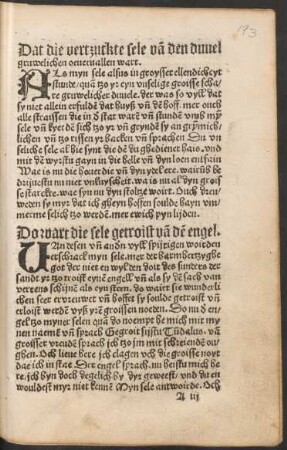 193
Dat die vertzuckte sele vā den duuel
gruwelichen oeueruallen wart.
ALs myn sele alsus in groysser ellendicheyt
stunde/quā tzo yr eyn vnselige groisse scha
re gruwelicher duuele. der was so vyll dat
sy niet allein erfulde dat huyß vn̄ dē hoff. mer ouch
alle straissen die in d̕ stat warē vn̄ stundē vmb myn
sele vn̄ kerdē sich tzo yr vn̄ gryndē sy an grȳmich/
lichen vn̄ tzo rissen yr backen vn̄ sprachen Du vn
seliche sele al hie synt die dē du ghedienet hais. vnd
mit dē wyrstu gayn in die helle vn̄ dyn loen entfain
Wae is nu die houerdie vn̄ dyn ydel ere. wairūb be
drijuestu nu niet vnkuyscheit. wa is nu al dyn groif
se starcke. wae syn nu dyn stoltze woirt. Ouch drau/
weden sy myr dat ich gheyn hoffen soulde hayn vm/
merme selich tzo werdē. mer ewich pyn lijden.
Do wart die sele getroist vā dē engel.
VAn desen vn̄ andn̄ vyll spijtigen woirden
erschrack myn sele. mer der barmhertzyghe
got der niet en wylden doit des sunders der
sandt yr tzo troist eynē engell vn̄ als sy dē sach van
verrens schijnē als eyn stern. do wairt sie wunderli
chen seer erureuwet vn̄ hoffet sy soulde getroist vn̄
erloist werdē vyß yrē groissen noeden. Do nu d̕ en/
gel tzo myner selen quā do noempt he mich mit my
nen namē vn̄ sprach Gegroit sijstu Tūdalus. vā
groisser vreudē sprach ich tzo jm mit schriendē ou/
ghen. Och lieue here ich clagen vch die groisse noyt
dae ich in stae Der engel sprach. nu heistu mich he
re. ich byn doch degelich by dyr geweest/ vnd du en
wouldest myr niet kennē Myn sele antwoirde. Och
A iij